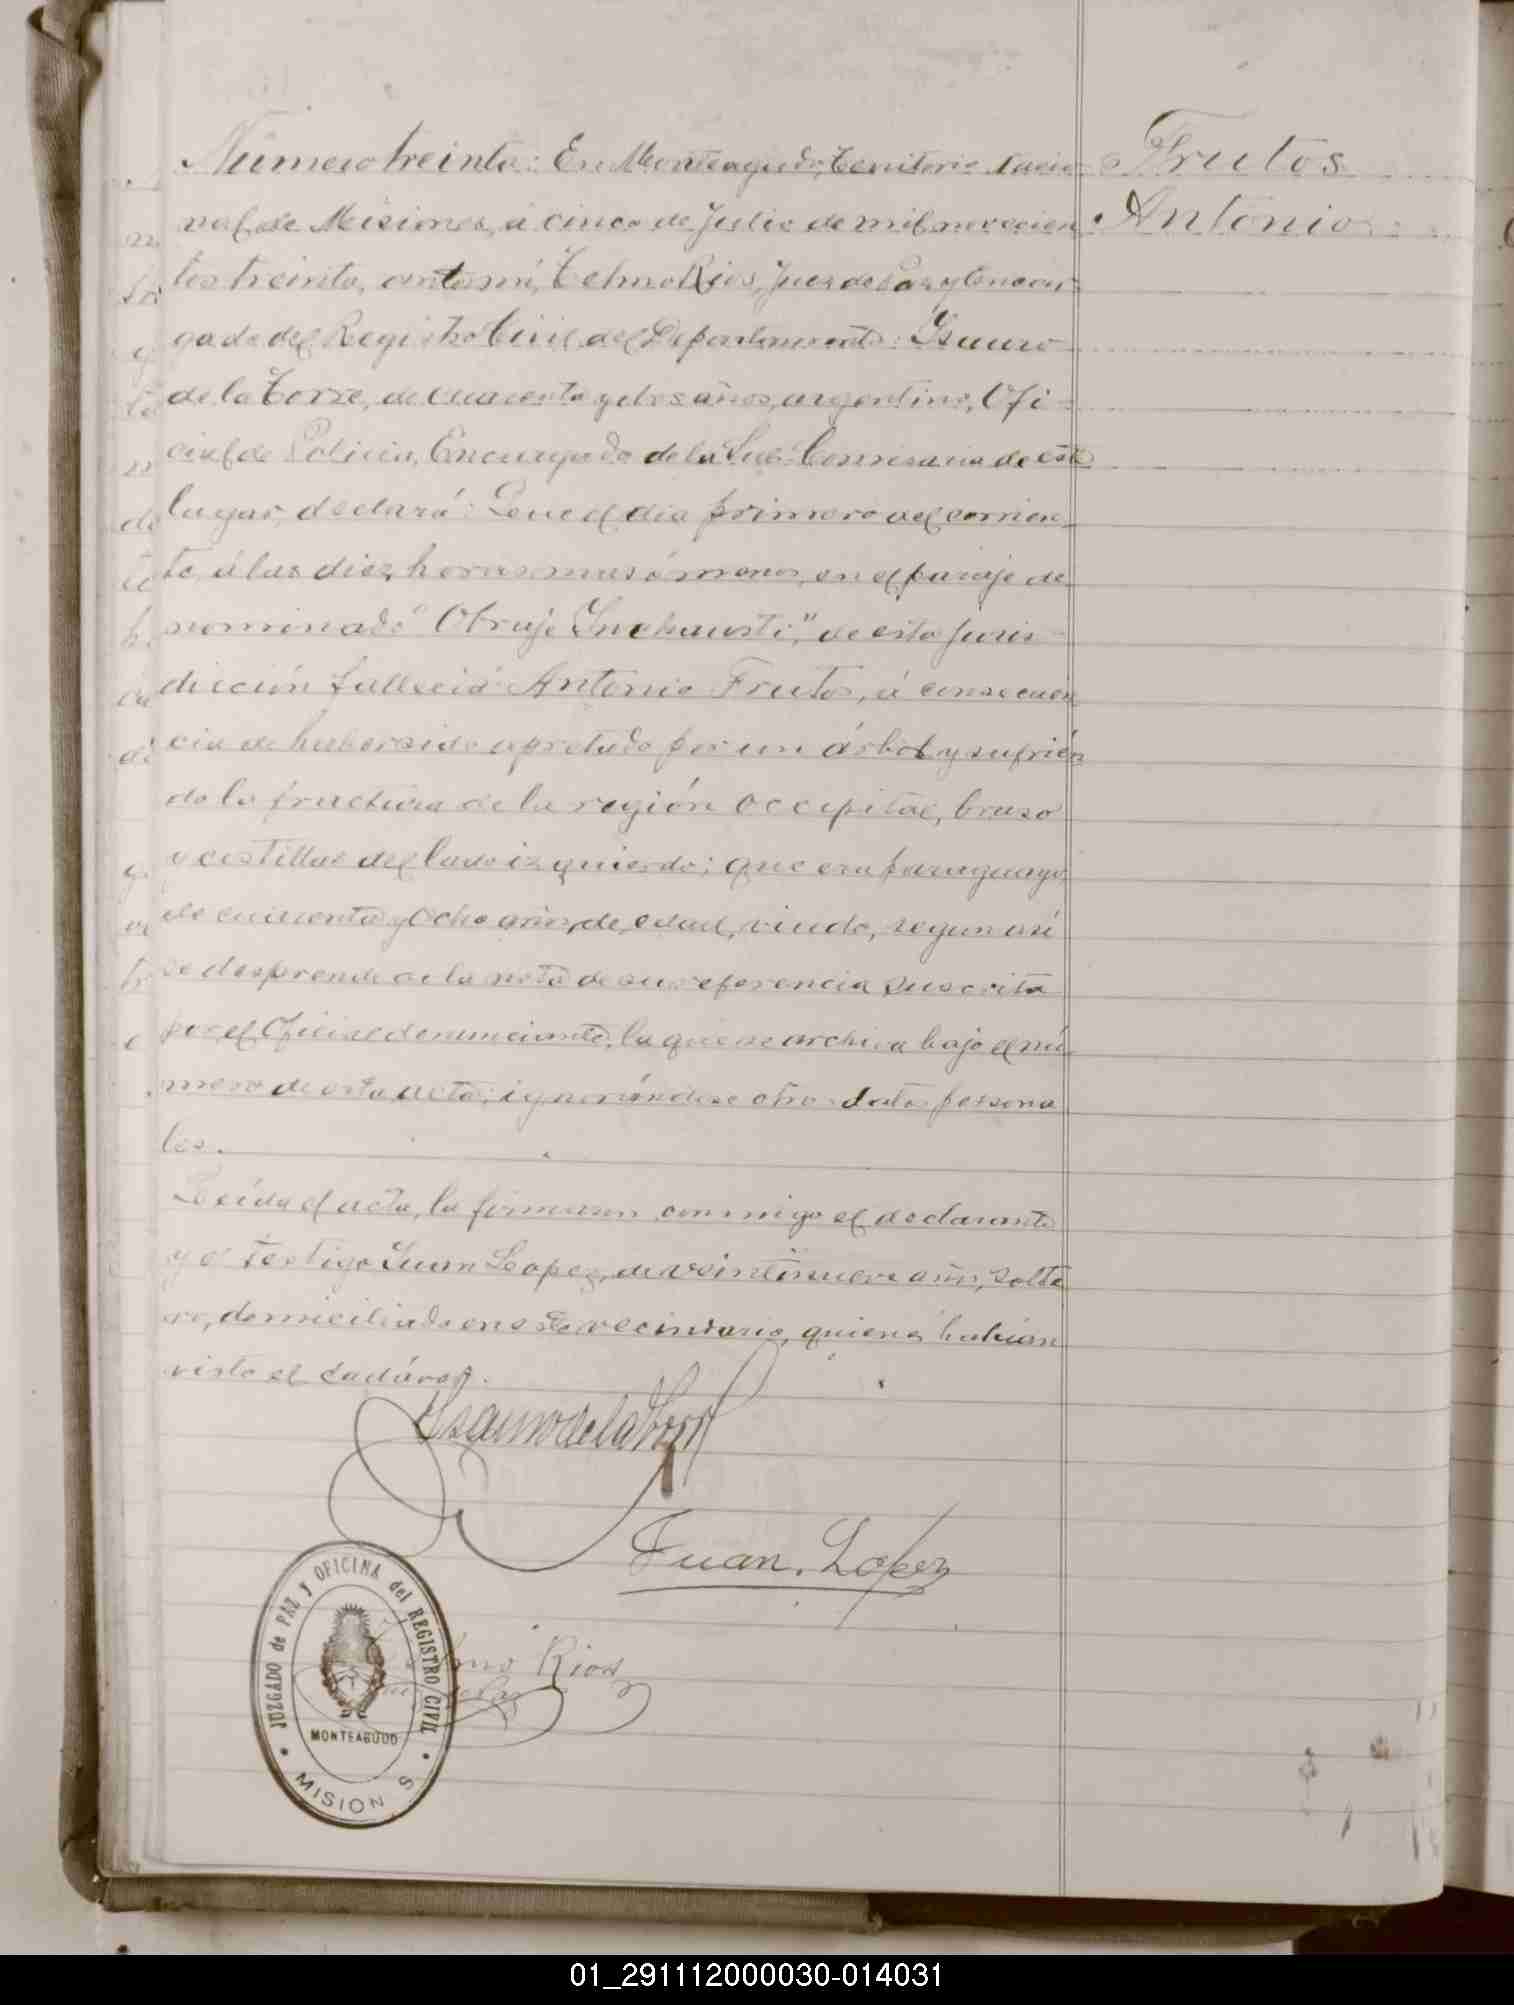 Número treinta: En Monteagudo, Territorio Nacio
nal de Misiones, á cinco de Julio de mil novecien
tos treinta, ante mí, Telmo Rios, Juez de Paz y Encar-
gado del Registro Civil del Departamento: Isauro
de la Torre, de cuarenta y dos años, argentino, Ofi-
cial de Policia, Encargado de la Sub-Comisaria de este
lugar, declaró: Que el dia primero del corrien-
te, á las diez horas mas ó menos, en el paraje de
nominado "Obraje Inchausti," de esta juris
dicción falleció Antonio Frutos, á consecuen
cia de haber sido apretado por un árbol y sufrién
do la fractura de la región occipital, braso
y costillas del lado izquierdo; que era paraguayo,
de cincuenta y ocho años, de edad, viudo, segun así
se desprende de la nota de su referencia suscrita
por el Oficial denunciante, la que se archiva bajo el nú
mero de esta acta; ignorándose otros datos persona
les.
Leída el acta, la firmaron conmigo el declarante
y el testigo Juan Lopez, de veintinueve años, solte
ro, domiciliado en este vecindario, quienes habian
visto el cadáver.
Isauro de la Torre
Juan Lopez
Telmo Rios
Juez de Paz
JUZGADO de PAZ y OFICINA del REGISTRO CIVIL
MONTEAGUDO
MISION S
Frutos
Antonio
01_291112000030-014031